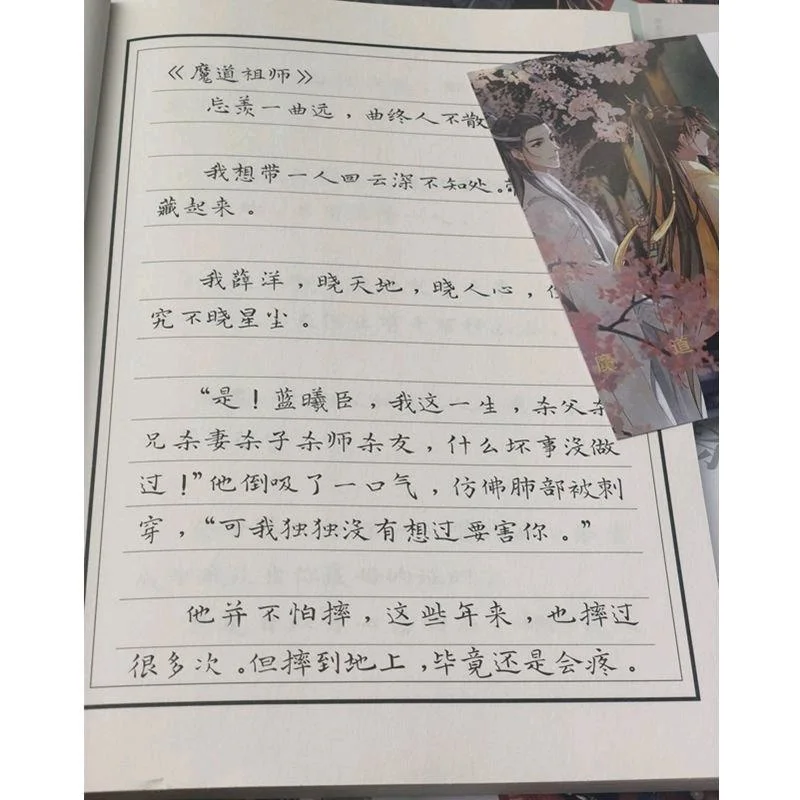 《魔道祖师》
忘羡一曲远，曲终人不散
我想带一人回云深不知处。带
藏起来。
我薛洋，晓天地，晓人心，
究不晓星尘。
“是！蓝曦臣，我这一生，杀父杀
兄杀妻杀子杀师杀友，什么坏事没做
过！”他倒吸了一口气，仿佛肺部被刺
穿，“可我独独没有想过要害你。”
他并不怕摔，这些年来，也摔过
很多次。但摔到地上，毕竟还是会疼。
魔 道